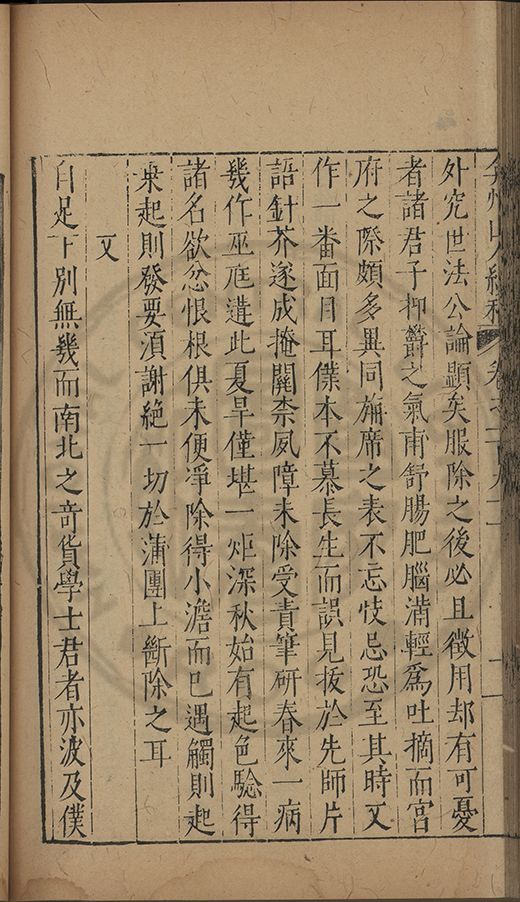 弇州山人續稿 卷之一百九十二 十一
外究世法公論顯矣服除之後必且徵用却有可憂
者諸君子抑欝之氣甫舒腸肥腦滿輕爲吐摘而宮
府之際頗多異同旃席之表不忘忮忌恐至其時又
作一番面目耳僕本不慕長生而誤見拔於先師片
語針芥遂成掩關柰夙障未除受責筆研春來一病
幾作巫尫遘此夏旱僅堪一炬深秋始有起色騐得
諸名欲忿恨根俱未便凈除得小澹而已遇觸則起
乗起則發要須謝絶一切於蒲團上斷除之耳
又
自足下別無幾而南北之竒貨學士君者亦波及僕